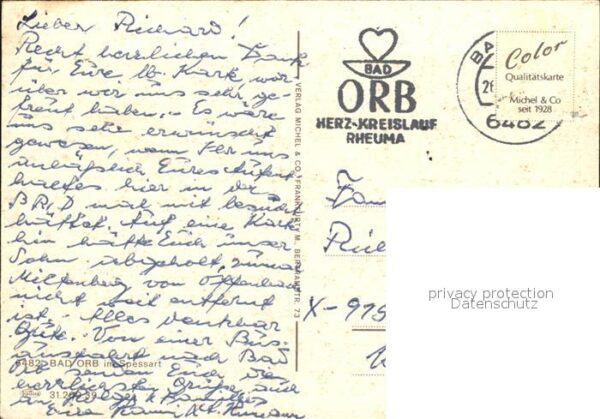 Lieber Richard!
Recht herzlichen Dank
für Eure lb. Karte, wor-
über wir uns sehr ge-
freut haben. Es wäre
uns sehr erwünscht
gewesen, wenn Ihr uns
anläßlich Eures Aufent-
haltes hier in der
BRD mal mit besucht
hättet. Auf eine Karte
hin hätte Euch unser
Sohn abgeholt, zumal
Miltenberg von Offenbach
nicht weit entfernt
ist. Alles dankbar
Von einer Bus-
nach Bad
Orb senden Euch
herzlichste Grüße, auch
an
Eure
6482 BAD ORB im Spessart
31.200.39
VERLAG MICHEL & CO., FRANKFURT/M., BERGMANSTR. 73
BAD
ORB
HERZ-KREISLAUF
RHEUMA
BA
26
6482
Color
Qualitätskarte
Michel & Co
seit 1928
Fam
Rich
X-975
privacy protection
Datenschutz